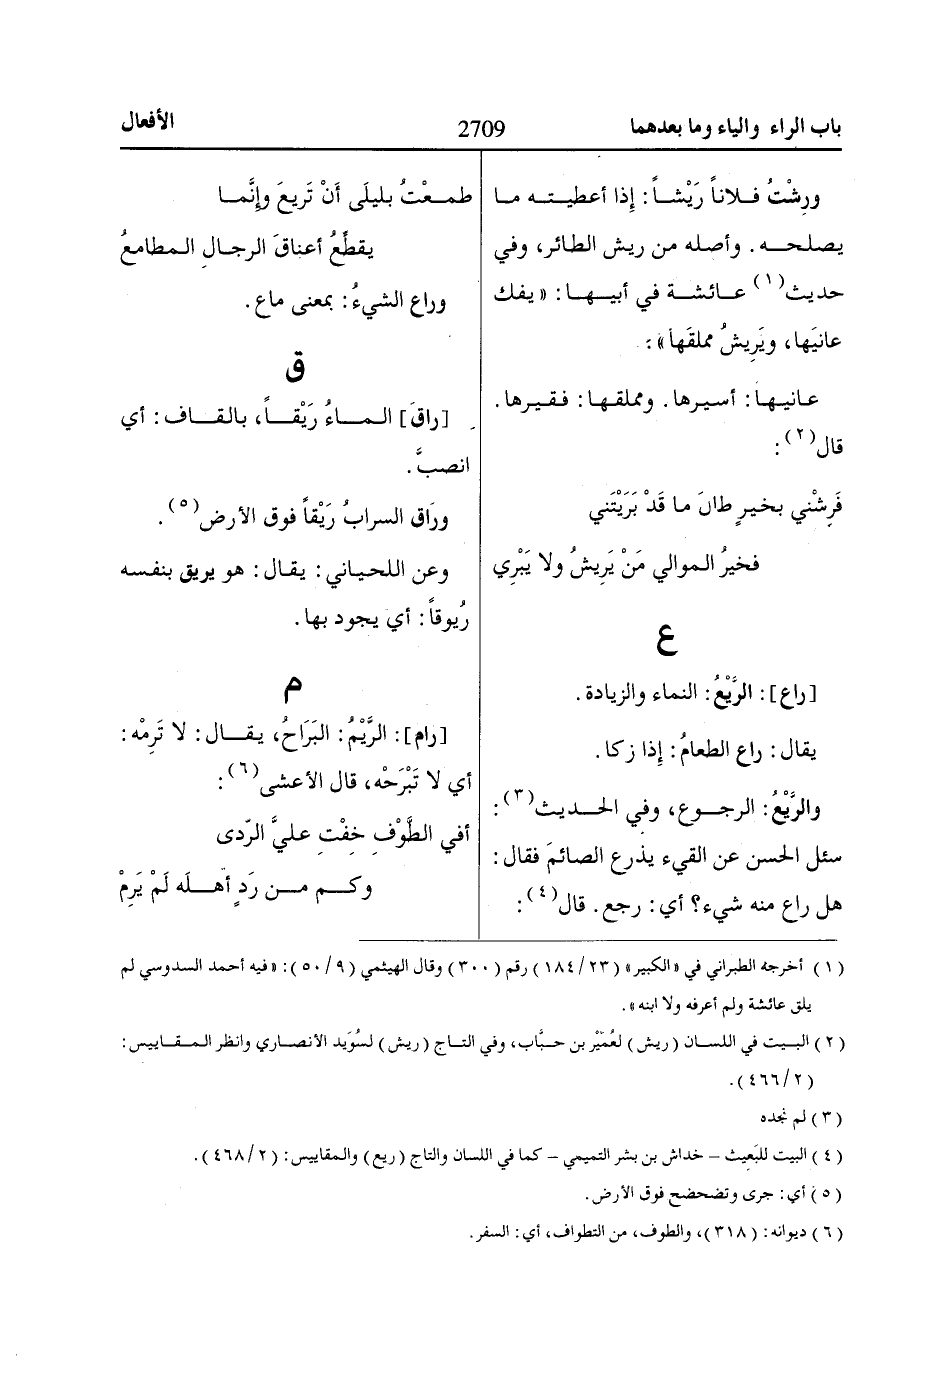 باب الراء والياء وما بعدهما
2709
الأفعال
ورِشْتُ فلاناً رَيْشاً: إذا أعطيته ما
يصلحه. وأصله من ريش الطائر، وفي
حديث(١) عائشة في أبيها: «يفك
عانيَها، ويَرِيشُ مملقَها»:
عانيها: أسيرها. ومملقها: فقيرها.
قال(٢):
فَرِشْني بخيرٍ طالَ ما قَدْ بَرَيْتَني
فخيرُ الموالي مَنْ يَرِيشُ ولا يَبْرِي
ع
[راع]: الرَّيْعُ: النماء والزيادة.
يقال: راع الطعامُ: إذا زكا.
والرَّيْعُ: الرجوع، وفي الحديث(٣):
سئل الحسن عن القيء يذرع الصائمَ فقال:
هل راع منه شيء؟ أي: رجع. قال(٤):
طمعْتُ بليلَى أَنْ تَرِيعَ وإِنَّما
يقطِّعُ أعناقَ الرجالِ المطامعُ
وراع الشيءُ: بمعنى ماع.
ق
[راقَ] الماءُ رَيْقاً، بالقاف: أي
انصبَّ.
ورَاق السرابُ رَيْقاً فوق الأرض(٥).
وعن اللحياني: يقال: هو يريق بنفسه
رُيوقاً: أي يجود بها.
م
[رام]: الرَّيْمُ: البَرَاحُ، يقال: لا تَرِمْه:
أي لا تَبْرَحْه، قال الأعشى(٦):
أفي الطَّوْفِ خِفْتِ عليَّ الرّدى
وكم من رَدٍ أهلَه لَمْ يَرِمْ
(١) أخرجه الطبراني في «الكبير» (١٨٤/٢٣) رقم (٣٠٠) وقال الهيثمي (٥٠/٩): «فيه أحمد السدوسي لم
يلق عائشة ولم أعرفه ولا ابنه».
(٢) البيت في اللسان (ريش) لعُمَيْر بن حبَّاب، وفي التاج (ريش) لسُوَيد الأنصاري وانظر المقاييس:
(٤٦٦/٢).
(٣) لم نجده
(٤) البيت للبَعِيث – خداش بن بشر التميمي – كما في اللسان والتاج (ريع) والمقاييس: (٤٦٨/٢).
(٥) أي: جرى وتضحضح فوق الأرض.
(٦) ديوانه: (٣١٨)، والطوف، من التطواف، أي: السفر.